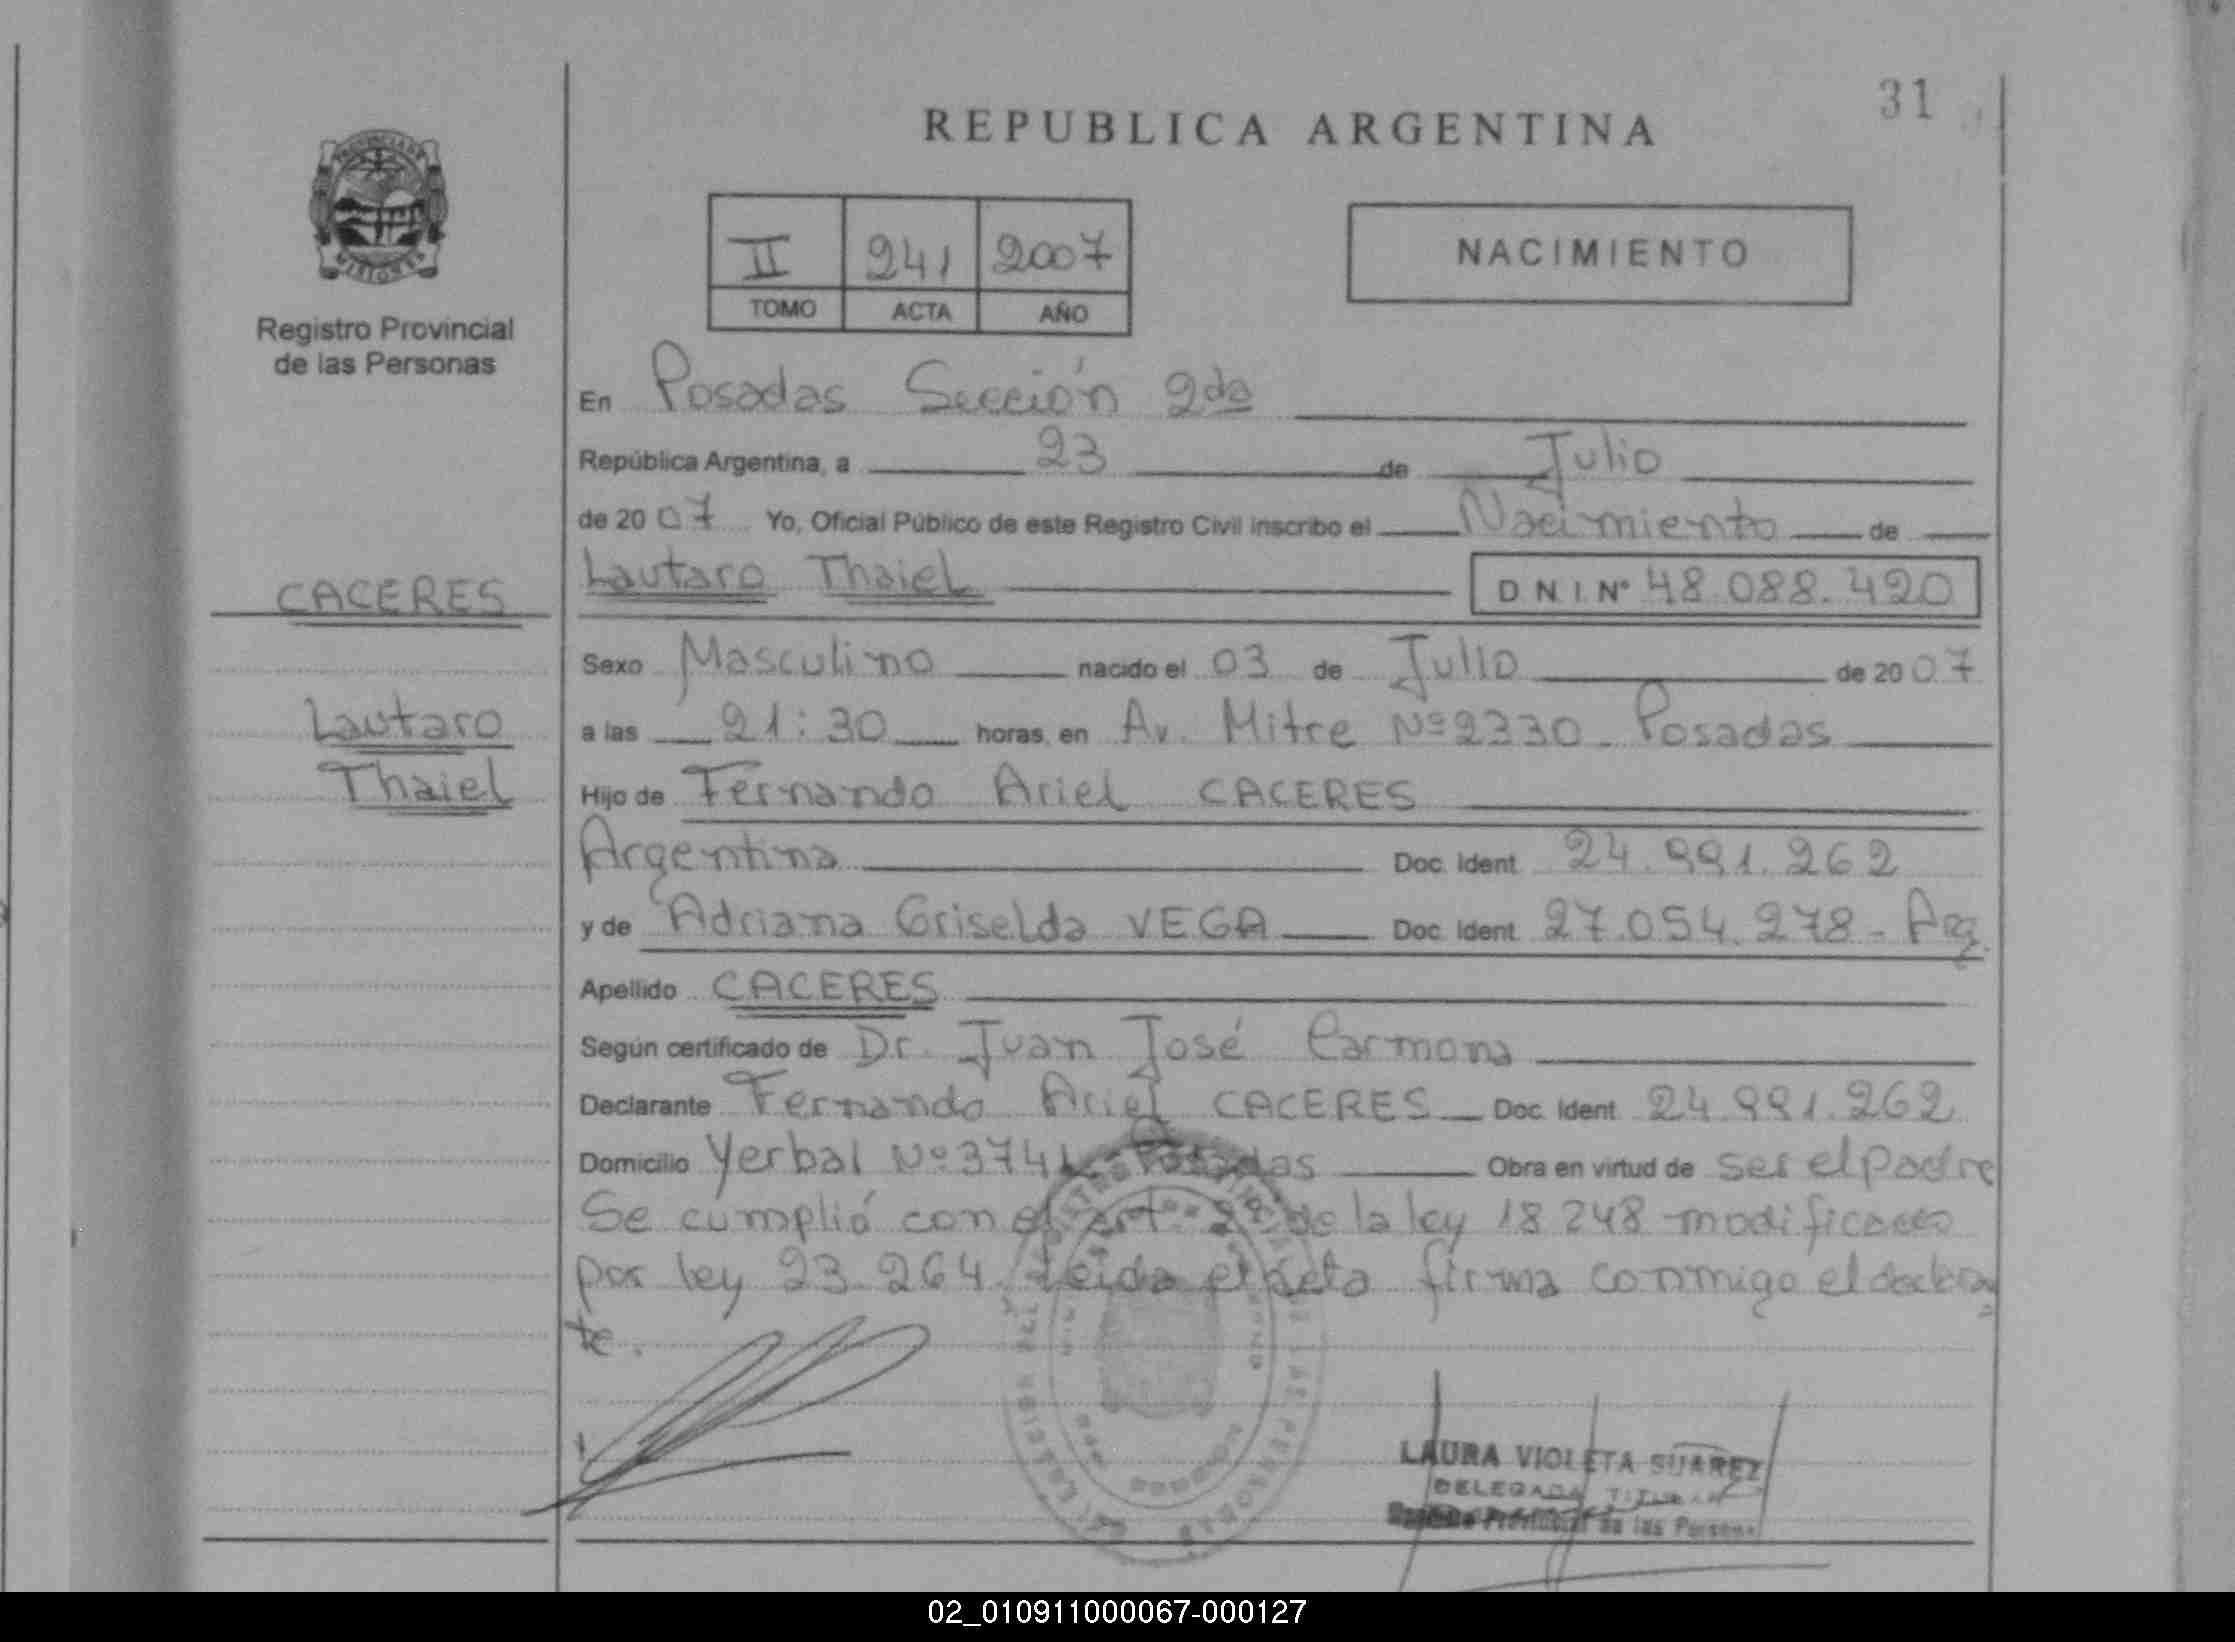 31
REPUBLICA ARGENTINA
PROVINCIA DE
MISIONES
Registro Provincial
de las Personas
II 241 2007
TOMO ACTA AÑO
NACIMIENTO
En Posadas Sección 2da
República Argentina, a 23 de Julio
de 2007 Yo, Oficial Público de este Registro Civil inscribo el Nacimiento de
CACERES
Lautaro Thaiel
D N I. Nº 48.088.420
Sexo Masculino nacido el 03 de Julio de 2007
Lautaro
Thaiel
a las 21:30 horas, en Av. Mitre Nº 2330 - Posadas
Hijo de Fernando Ariel CACERES
Argentina Doc. Ident. 24.991.262
y de Adriana Griselda VEGA Doc. Ident. 27.054.278 - Arg.
Apellido CACERES
Según certificado de Dr. Juan José Carmona
Declarante Fernando Ariel CACERES Doc. Ident. 24.991.262
Domicilio Yerbal Nº 3741 - Posadas Obra en virtud de ser el padre
Se cumplió con el art. de la ley 18.248 modificado
por ley 23.264. Leída el acta firma conmigo el declaran
te.
LAURA VIOLETA SUAREZ
DELEGADA TITULAR
Registro Provincial de las Personas
02_010911000067-000127